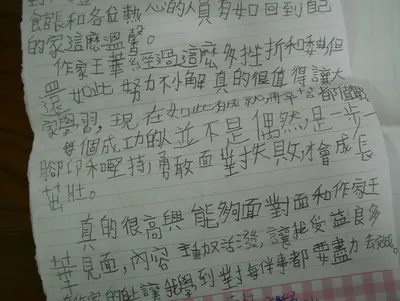 館長和各位熱心的人員有如回到自己
的家這麼溫馨。
作家王華經過這麼多挫折和委屈但
還如此努力不懈真的很值得讓大
家學習,現在如此
每個成功的人並不是偶然是一步一
腳印和堅持,勇敢面對失敗,才會成長
茁壯。
真的很高興能夠面對面和作家王
華見面,內容生動又活潑,讓我受益良多
讓我學到對每件事都要盡力去完成。